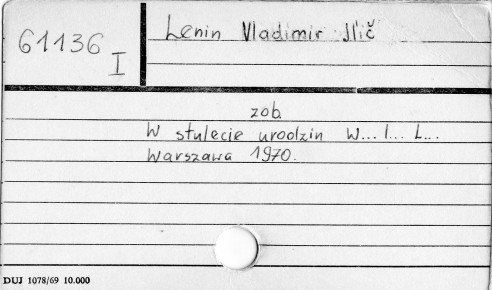 61136
I
Lenin Vladimir Ilič
zob.
W stulecie urodzin W... I... L...
Warszawa 1970.
DUJ 1078/69 10.000